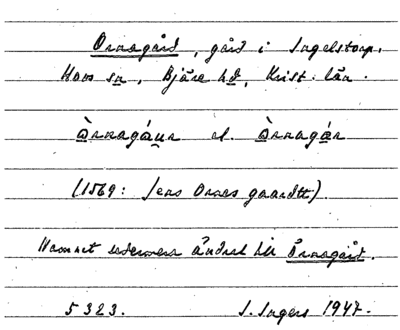 Ornagård, gård i Ingelstorp.
Hovs sn, Bjäre hd, Krist. län.
Òrnagáun el. Òrnagán
(1569: Jens Ornes gaardtt)
Namnet sedermera ändrat till Örnagård.
5323. I. Ingers 1947.